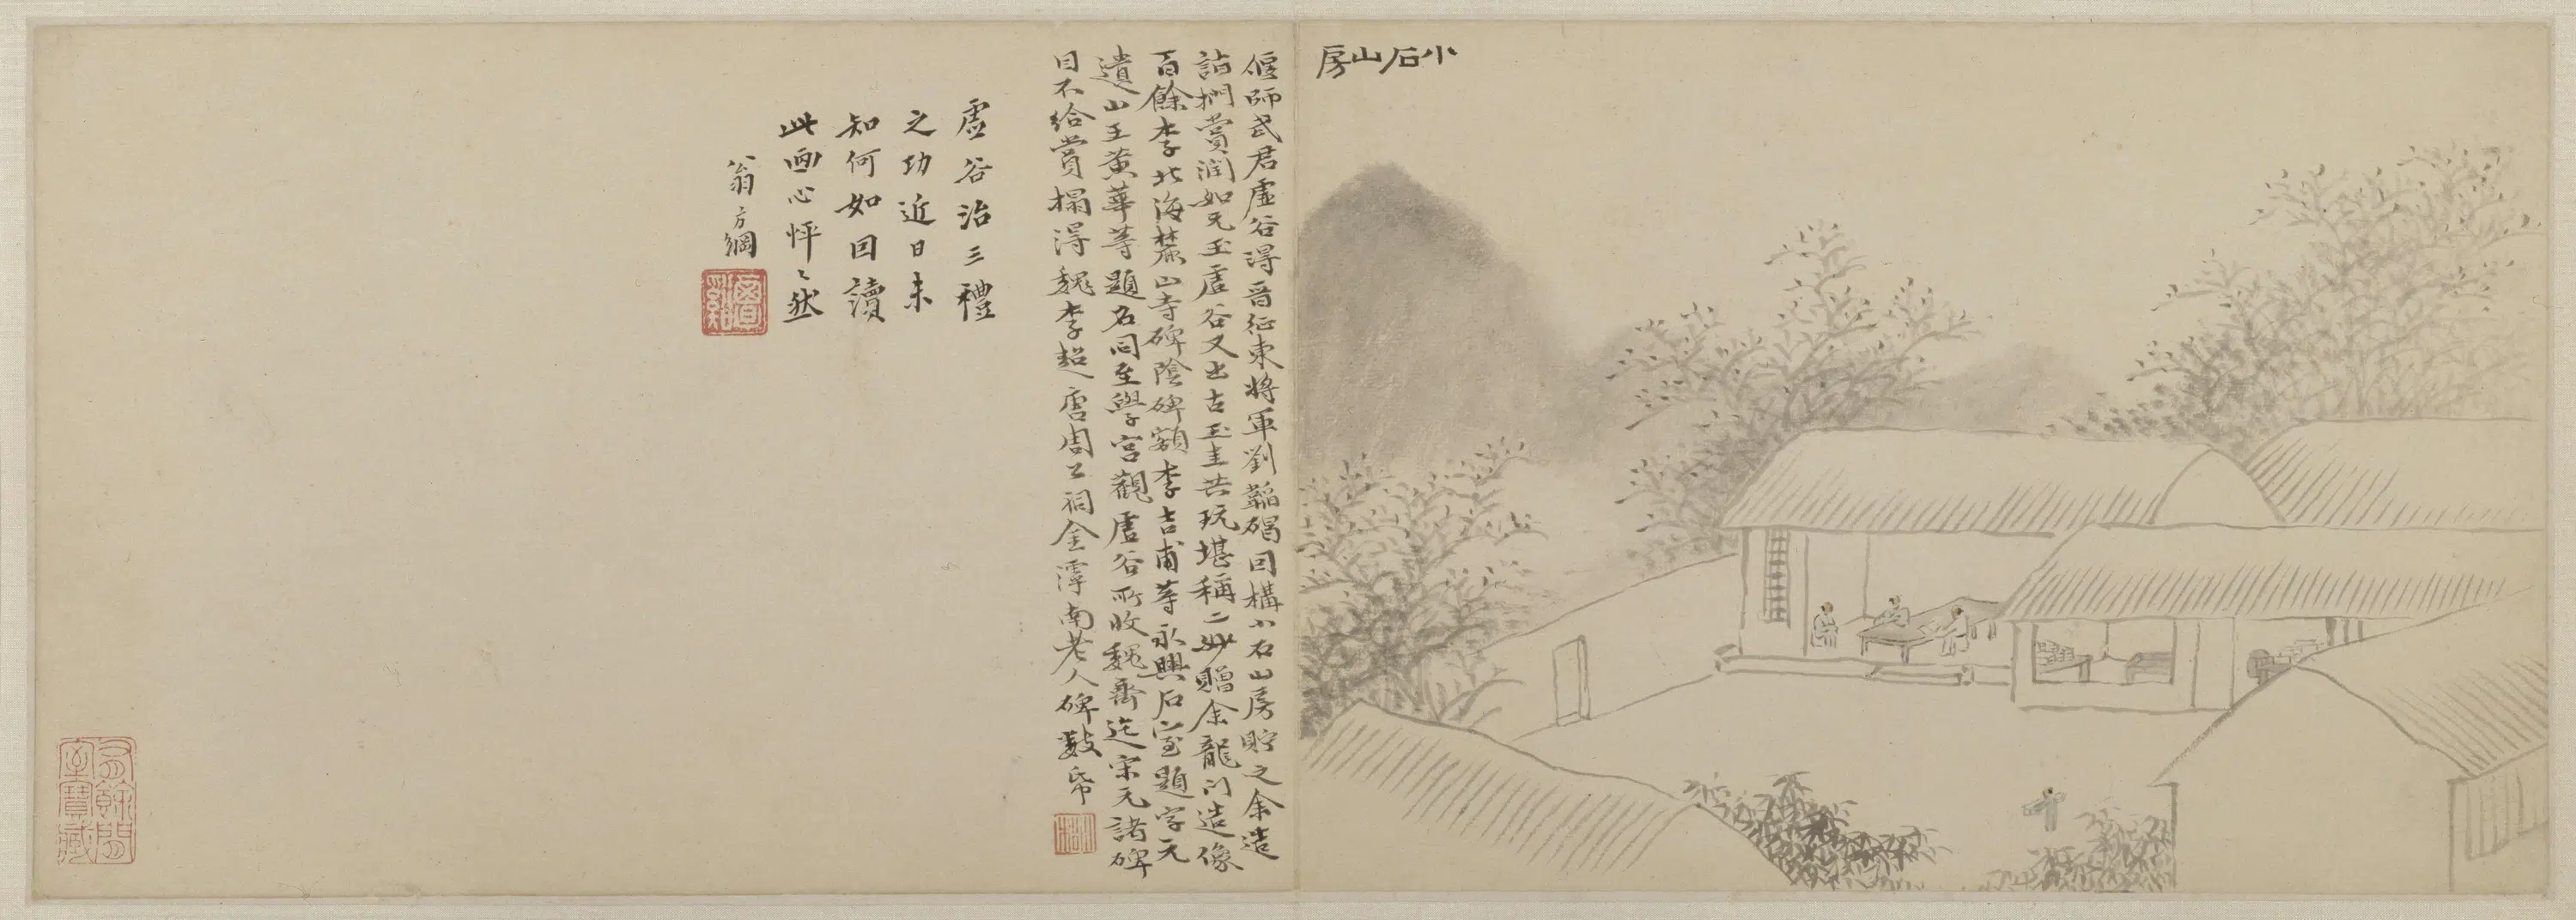 小石山房
偃師武君虛谷得晉征東將軍劉韜碣回構小石山房貯之余造
詣捫賞潤如元玉虛谷又出古玉圭共玩堪稱二妙贈余龍門造像
百餘李北海麓山寺碑陰碑額李吉甫等永興石室題字元
遺山王黃華等題名同至學宮觀虛谷所收魏齊迄宋元諸碑
目不給賞搨得魏李超唐周公祠金潭南老人碑數帋
虛谷治三禮
之功近日未
知何如回讀
此畫心怦々然
翁方綱